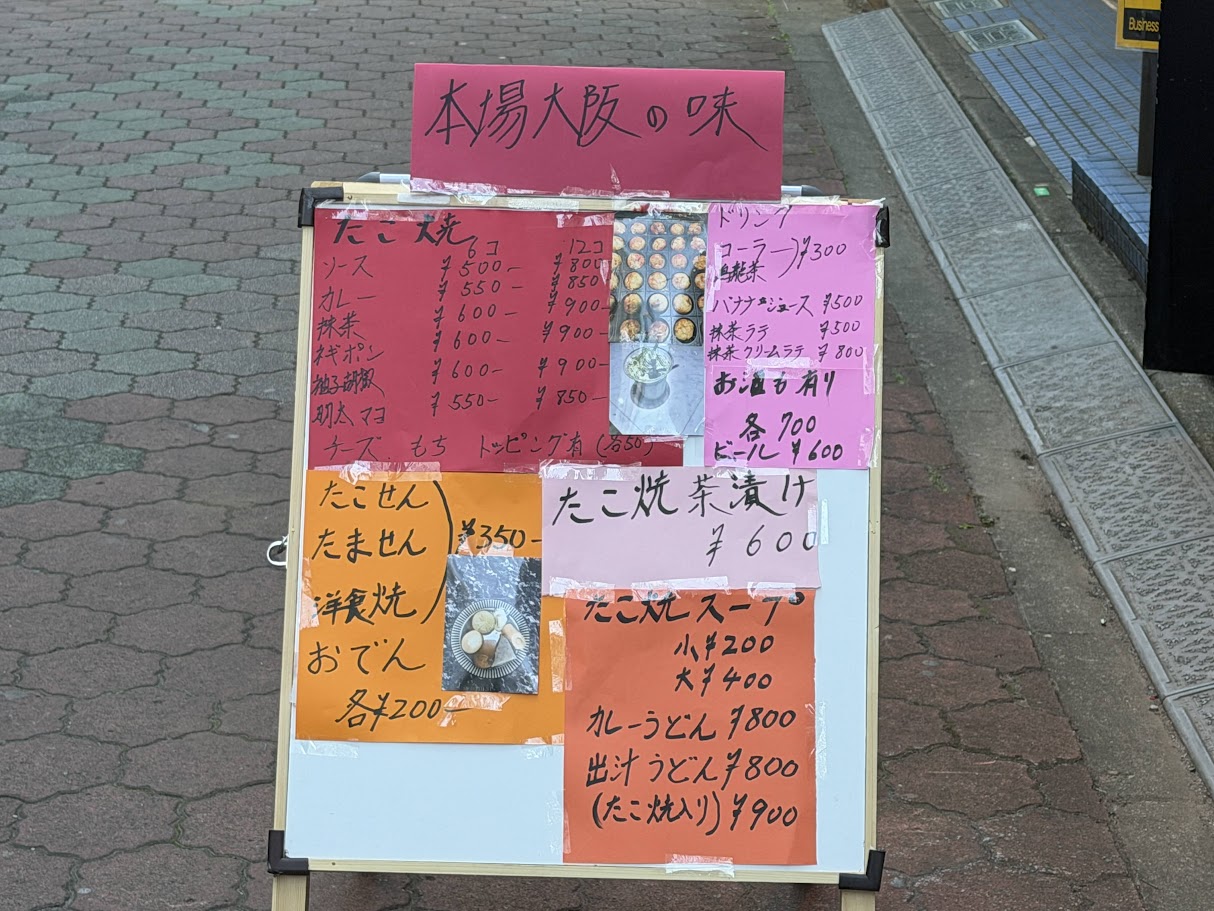 本場大阪の味
たこ焼
6コ 12コ
ソース ¥500- ¥800
カレー ¥550- ¥850
抹茶 ¥600- ¥900-
ネギポン ¥600- ¥900-
柚子胡椒 ¥600- ¥900-
明太マヨ ¥550- ¥850-
チーズ、もち トッピング有(各50)
ドリンク
コーラー
烏龍茶 ) ¥300
バナナジュース ¥500
抹茶ラテ ¥500
抹茶クリームラテ ¥800
お酒も有り
各700
ビール ¥600
たこせん
たません
洋食焼 ) ¥350-
おでん
各¥200-
たこ焼茶漬け
¥600
たこ焼スープ
小¥200
大¥400
カレーうどん¥800
出汁うどん¥800
(たこ焼入り)¥900
Business